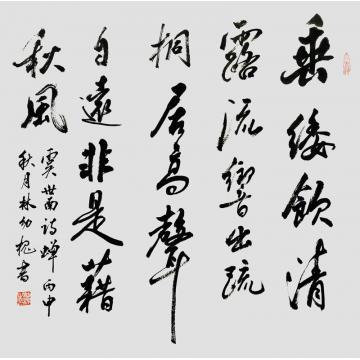 垂緌飲清
露流響出疏
桐居高聲
自遠非是藉
秋風
虞世南詩蟬丙申
秋月林幼槐書